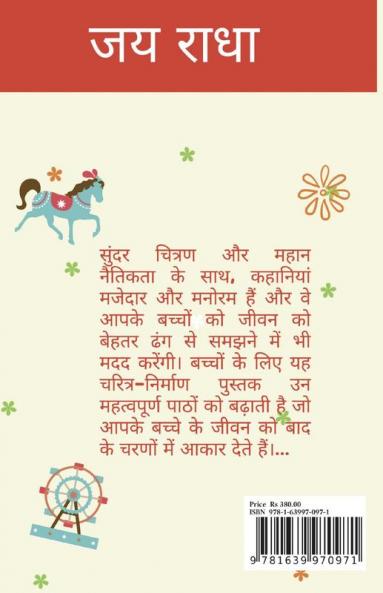 जय राधा
सुंदर चित्रण और महान
नैतिकता के साथ, कहानियां
मजेदार और मनोरम हैं और वे
आपके बच्चों को जीवन को
बेहतर ढंग से समझने में भी
मदद करेंगी। बच्चों के लिए यह
चरित्र-निर्माण पुस्तक उन
महत्वपूर्ण पाठों को बढ़ाती है जो
आपके बच्चे के जीवन को बाद
के चरणों में आकार देते हैं।...
Price Rs 380.00
ISBN 978-1-63997-097-1
9 781639 970971